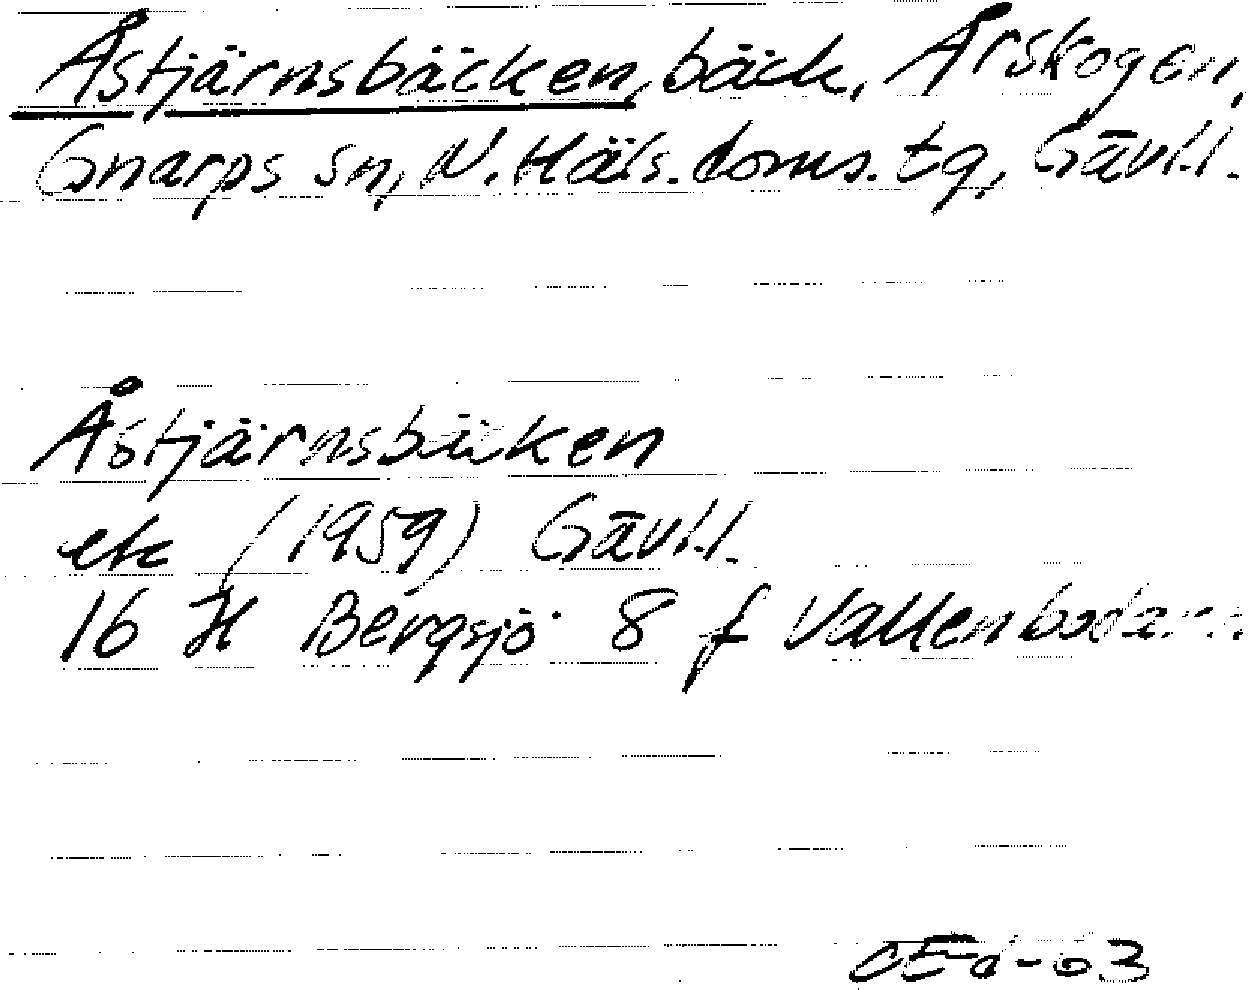 Åstjärnsbäcken, bäck, Årskogen,
Gnarps sn, N. Häls. doms. tg, Gävl.l.
Åstjärnsbäcken
ek (1959) Gävl.l.
16 H Bergsjö 8 f Vallenbodarna